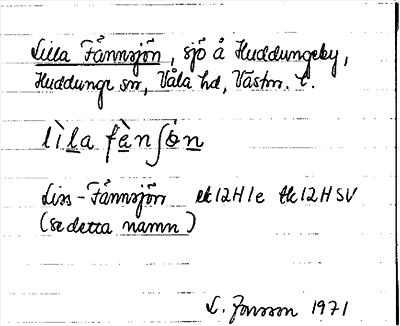 Lilla Fännsjön, sjö å Huddungeby,
Huddunge sn, Våla hd, Västm. l.
lìla fènʃòn
Liss-Fännsjön ek12H1e tk12H SV
(se detta namn)
L. Jonsson 1971